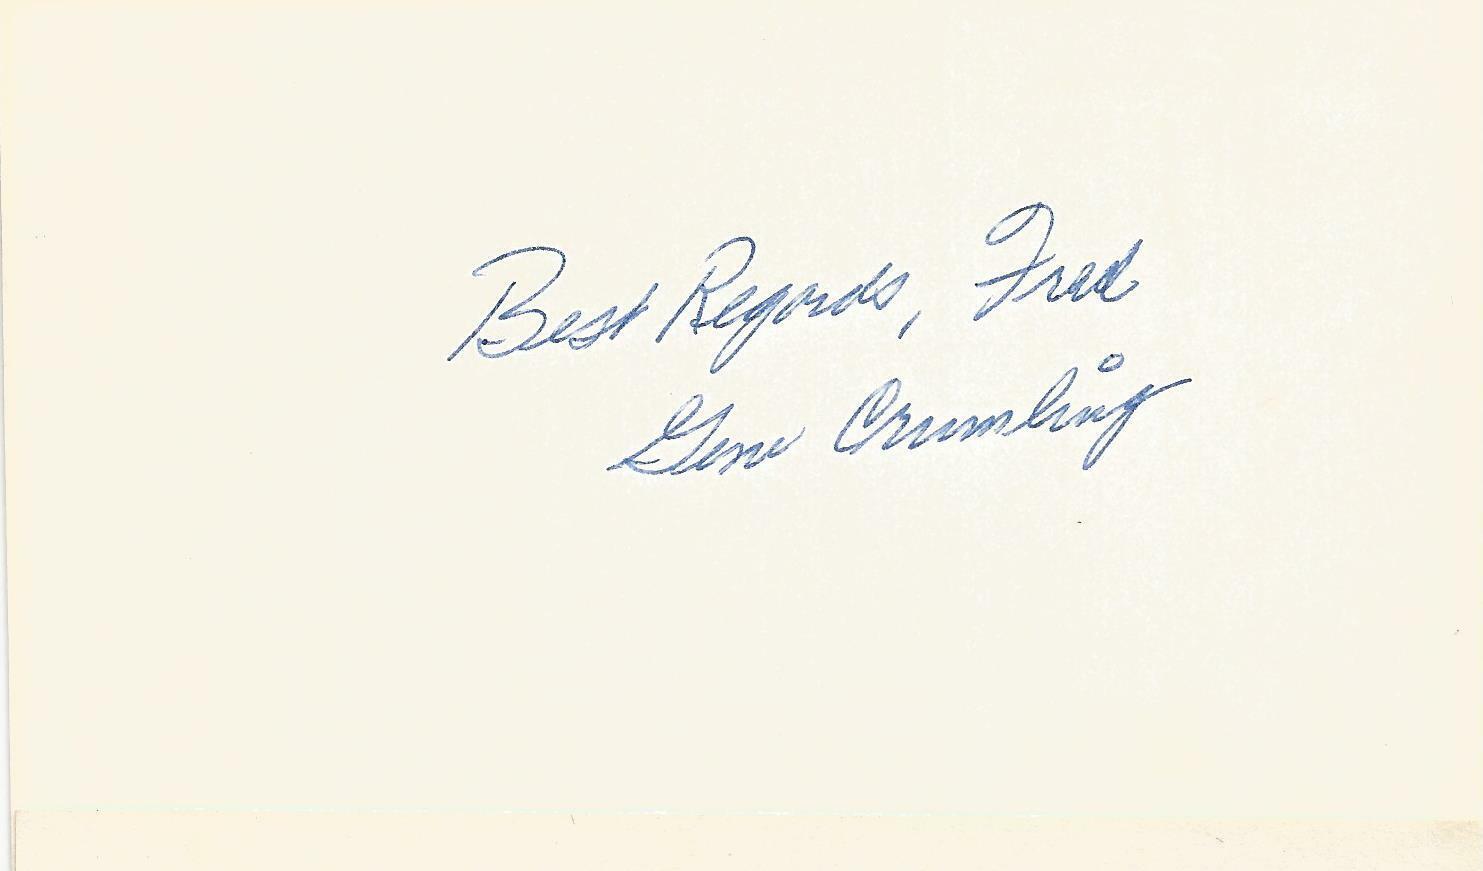 Best Regards, Fred
Gene Crumling